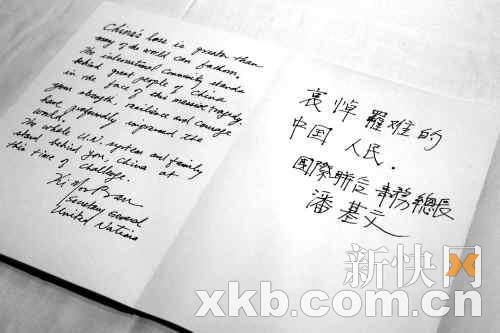 China's loss is greater than
many of the world can fathom.
The international community stands
behind great people of China
in the face of this massive tragedy
your strength, resilience and courage
have profoundly impressed the
world.
The whole U.N. system and family
stand behind you, China at
this time of challenge.
Ki Moon Ban
Secretary General
United Nations
哀悼罹难的
中国人民.
国際聯合 事務總長
潘基文
新快网
xkb.com.cn